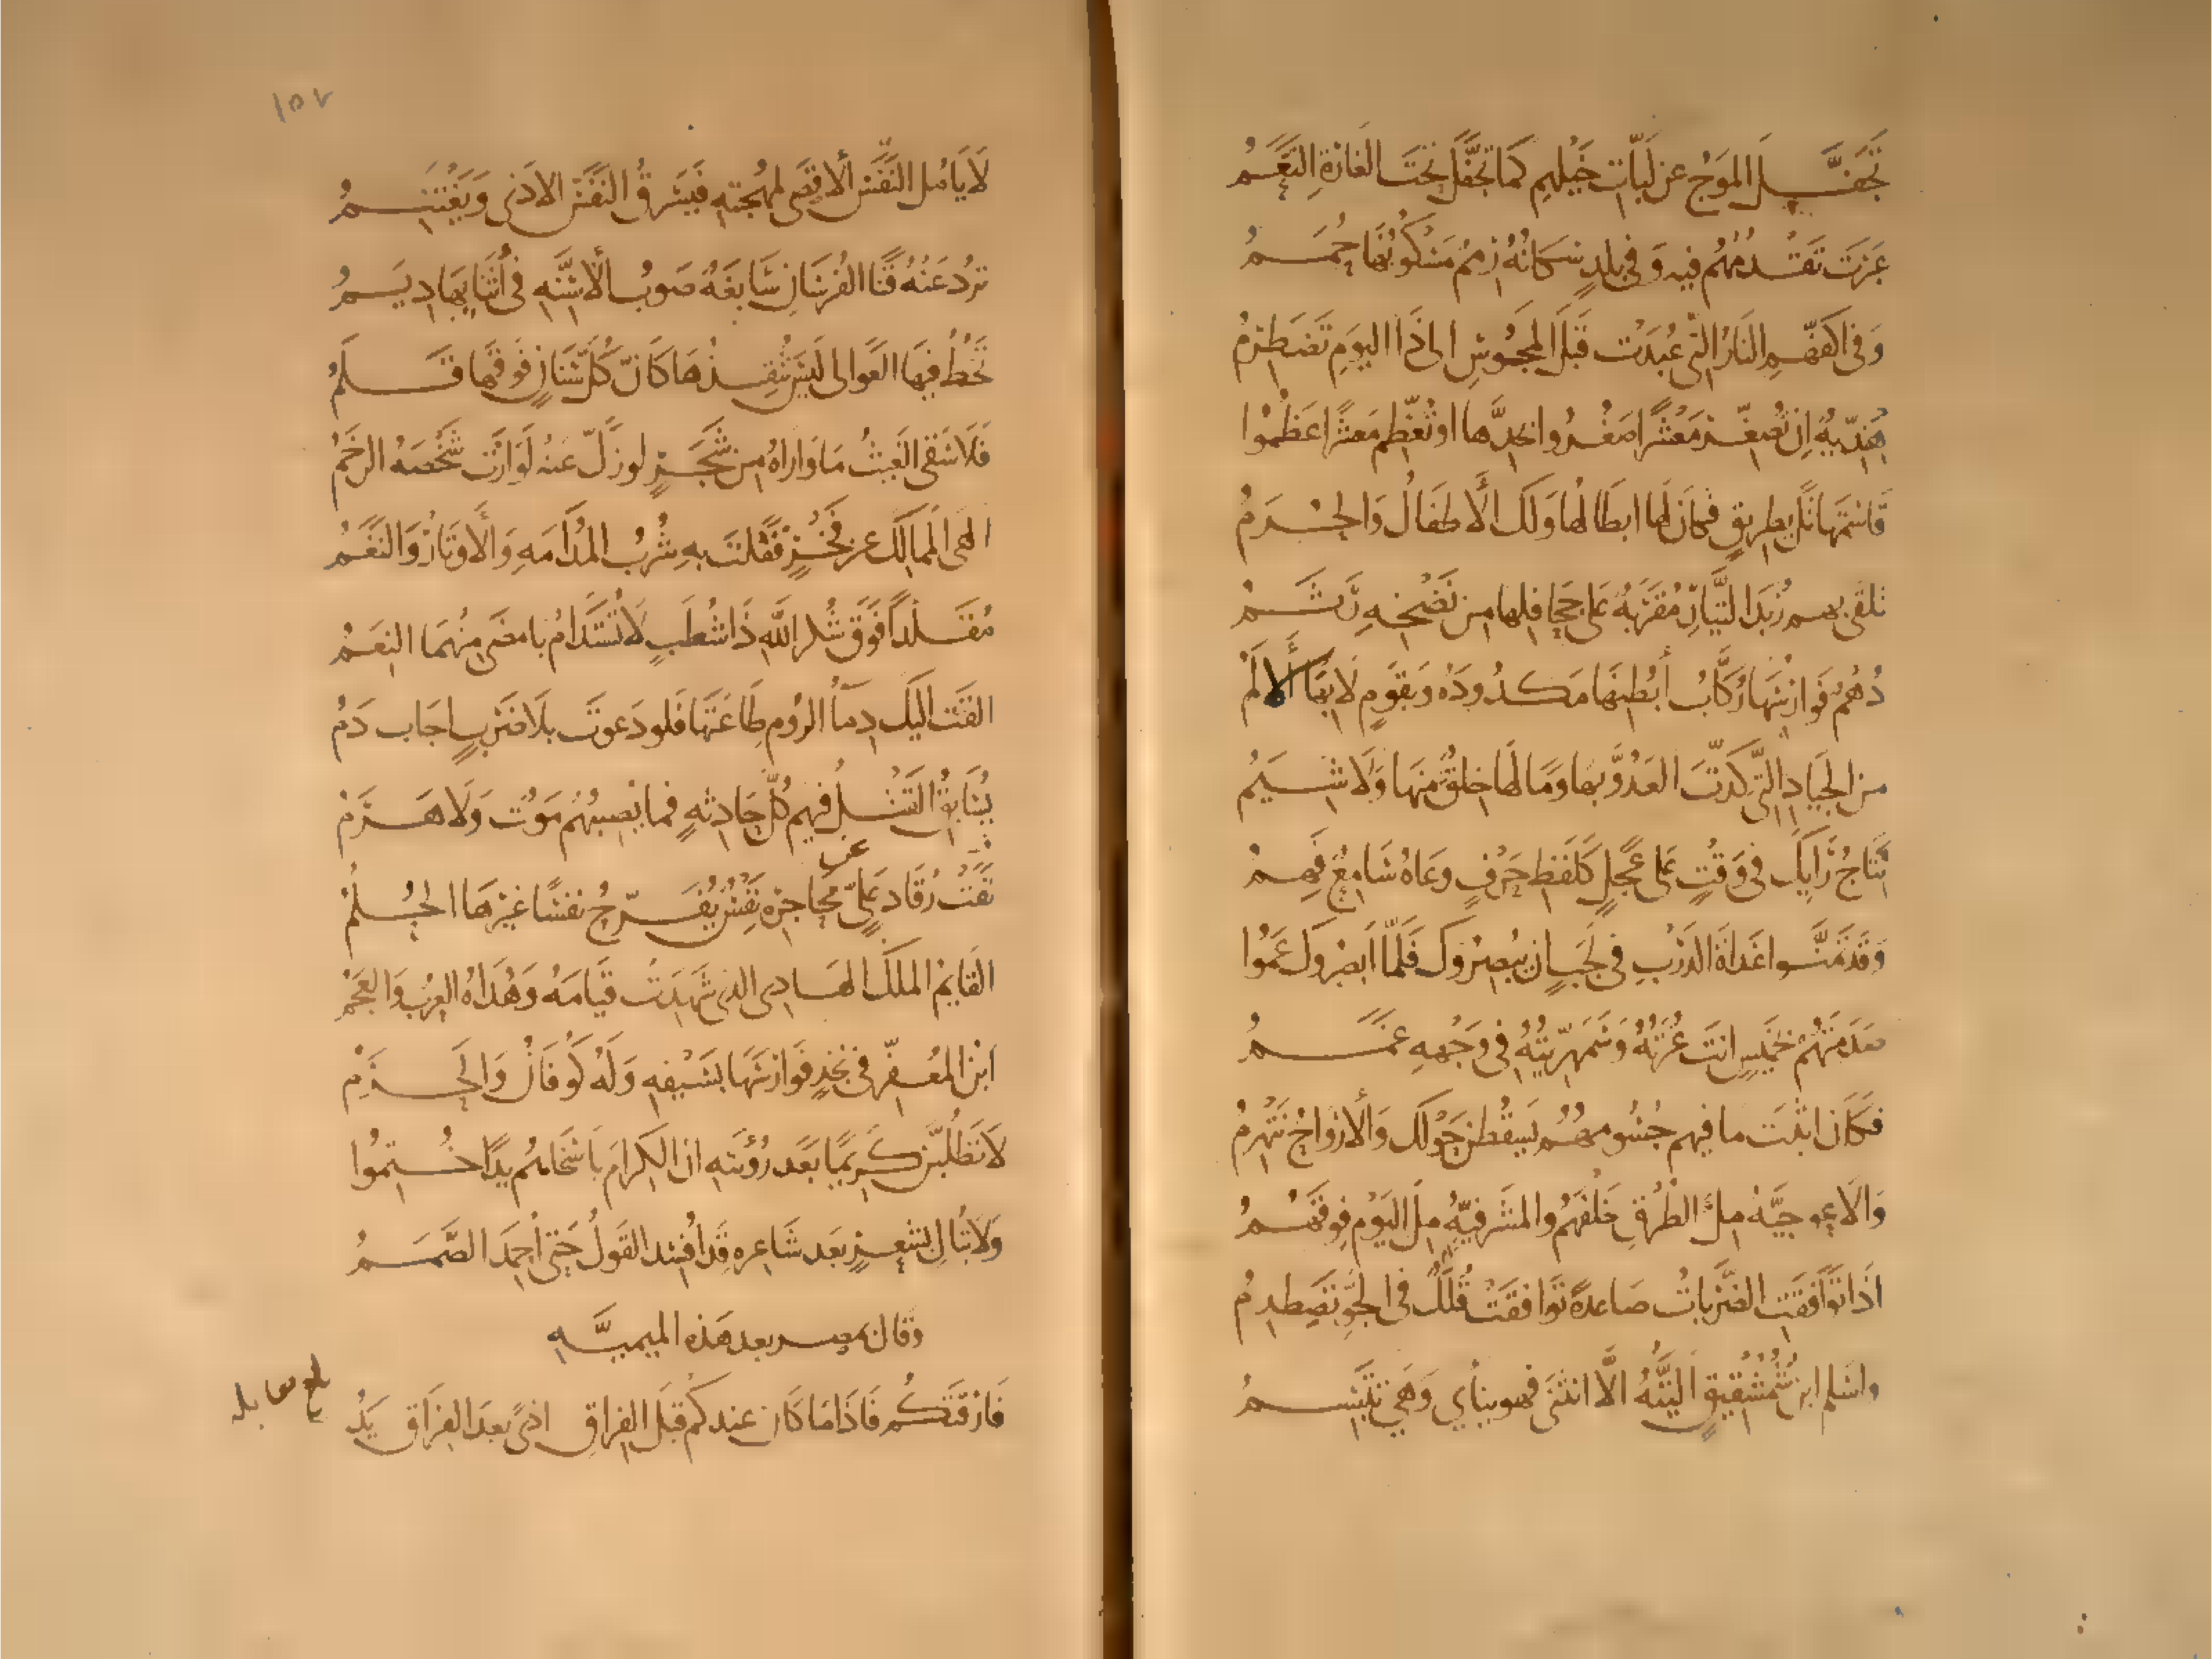 تَجَفَّلَ المَوجُ عن لَبَّاتِ خَيْلِهِم كَمَا تَجَفَّلُ تَحتَ الغَارَةِ النَّعَمُ
عَبَرْتَ تَقْدُمُهُم فيه وَفي بَلَدٍ سُكّانُهُ رِمَمٌ مَسْكُونُهَا حُمَمُ
وَفي اكُفِّهِم النَارُ الَّتي عُبِدَتْ قَبْلَ المَجُوسِ الى ذَا اليَومِ تَضْطَرِمُ
هِنْدِيّةٌ اِن تُصَغِّرْ مَعْشَرًا صَغُرُوا بحَدِّها او تُعَظِّمْ مَعشَرًا عَظُمُوا
قَاسَمْتَها تَلَّ بِطرِيقٍ فكَانَ لَها ابطَالُها وَلَكَ الأَطفَالُ وَالحُرَمُ
تَلقَى بهم زَبَدَ التَّيَّارِ مُقْرَبَةٌ عَلى جَحَافِلها من نَضْحِهِ رَثَمُ
دُهْمٌ فَوَارِسُهَا رُكَّابُ أَبْطُنِهَا مَكدُودَةٌ وَبقَومٍ لَا بِهَا أَلَمُ
من الجِيَادِ الَّتي كِدْتَ العَدُوَّ بها وَمَا لَها خِلَقٌ مِنهَا وَلَا شِيَمُ
نِتَاجُ رَايِكَ في وَقْتٍ عَلى عَجَلٍ كَلَفظِ حَرْفٍ وَعَاهُ سَامِعٌ فَهِمُ
وَقَد تَمَنَّوا غَدَاةَ الدَربِ في لَجَبٍ ان يُبصِرُوكَ فَلَمّا أَبصَرُوكَ عَمُوا
صَدَمْتَهُمْ بخَمِيسٍ انتَ غُرّتُهُ وَسَمْهَرِيَّتُهُ في وَجْهِهِ غَمَمُ
فكَانَ اثْبَتَ ما فيهم جُسُومهُمُ يَسقُطنَ حَوْلَكَ وَالأَرْوَاحُ تَنْهَزِمُ
وَالاعوجِيَّةُ مِلءَ الطُرْقِ خَلْفَهُمُ والمشرَفِيَّةُ مِلءَ اليَوْمِ فوقَهُمُ
اذَا تَوَافَقَتِ الضَّرْبَاتُ صَاعِدَةً تَوَافَقَتْ قُلَلٌ في الجَوِّ تَصْطَدِمُ
واسْلَم ابن شُمُشْقِيقٍ أَلِيَّتَهُ الَّا انثَنَى فهو يَنأَي وَهْيَ تَبتَسِمُ
١٥٧
لَا يَامُل النَّفَسَ الأقْصَى لمُهجَتِهِ فَيَسْرِقُ النَّفَسَ الادْنى وَيَغْتَنِمُ
تَرُدُّ عَنْهُ قَنَا الفُرسَانِ سَابِغَةٌ صَوبُ الأسِنَّةِ في أَثْنَايِهَا دِيَمُ
تَخُطُّ فيهَا العَوَالى لَيسَ تَنْفُذُهَا كَانّ كُلَّ سِنَانٍ فَوقَهَا قَلَمُ
فَلَا سَقَى الغَيثُ مَا وَاراهُ من شَجَرٍ لو زَلَّ عَنهُ لَوَارَتْ شَخْصَهُ الرَخَمُ
الهَى المَمالِكَ عن فَخْرٍ قَفَلتَ بهِ شُربُ المُدَامَةِ وَالأَوتَارُ وَالنَّغَمُ
مُقَلَّداً فَوقَ شُكر اللهِ ذَا شُطَبٍ لَا تُسْتَدَامُ بامضَى مِنْهُمَا النِعَمُ
القَتْ اليكَ دِمَاُ الرُوم طَاعَتَهَا فَلو دَعوتَ بلَا ضَربٍ اجَاب دَمُ
يُسَابِقُ القَتْلُ فيهم كُلَّ حَادِثَةٍ فما يُصِيبُهُمُ مَوتٌ وَلَا هَرَمُ
عن
نَفَتْ رُقَادَ عَليٍّ مَحَاجِرِهِ نَفْسٌ يُفَرِّجُ نَفسًا غَيْرَهَا الحُلُمُ
القَايِمُ المَلكُ الهَادي الذي شَهِدَتْ قِيَامَهُ وَهُدَاهُ العُربُ وَالعَجَمُ
ابْنُ المُعَفِّرِ في نَجْدٍ فَوَارِسَهَا بسَيْفِهِ وَلَهُ كُوفَانُ وَالحَرَمُ
لَا تَطْلُبَنَّ كَرِيمًا بَعْدَ رُؤيتِه ان الكِرَامَ بَاسْخَاهُم يَدًا خُتِمُوا
وَلَا تُبَالِ بشِعرٍ بَعدَ شَاعِرِهِ قَد اُفْسِدَ القَولُ حَتّى اُحمِدَ الصَّمَمُ
وقال بمصر بعد هذه الميميَّه
فَارَقْتُكُم فَاذَا مَا كَانَ عندكُم قَبلَ الفِراقِ اذىً بعدَ الفِرَاق يَدُ